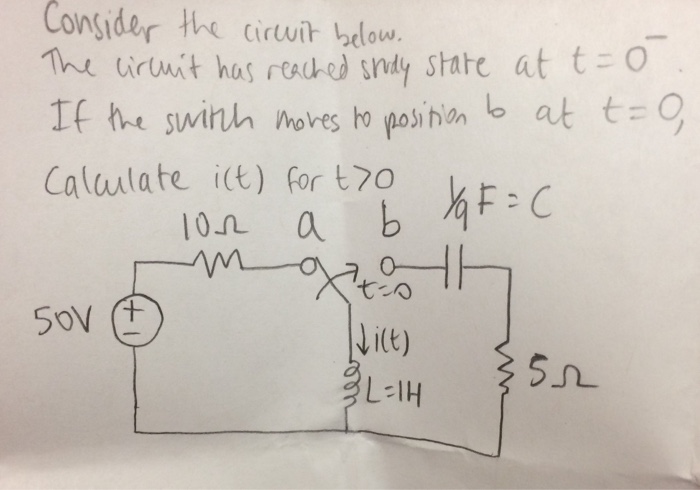 Consider the circuit below.
The circuit has reached stady state at t=0⁻.
If the switch moves to position b at t=0,
Calculate i(t) for t>0
10Ω a b 1/9 F = C
t=0
50V + −
↓i(t)
5Ω
L=1H